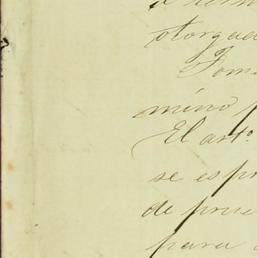 otorgad
Tom
mino p
El arto.
se espr
de prue
para